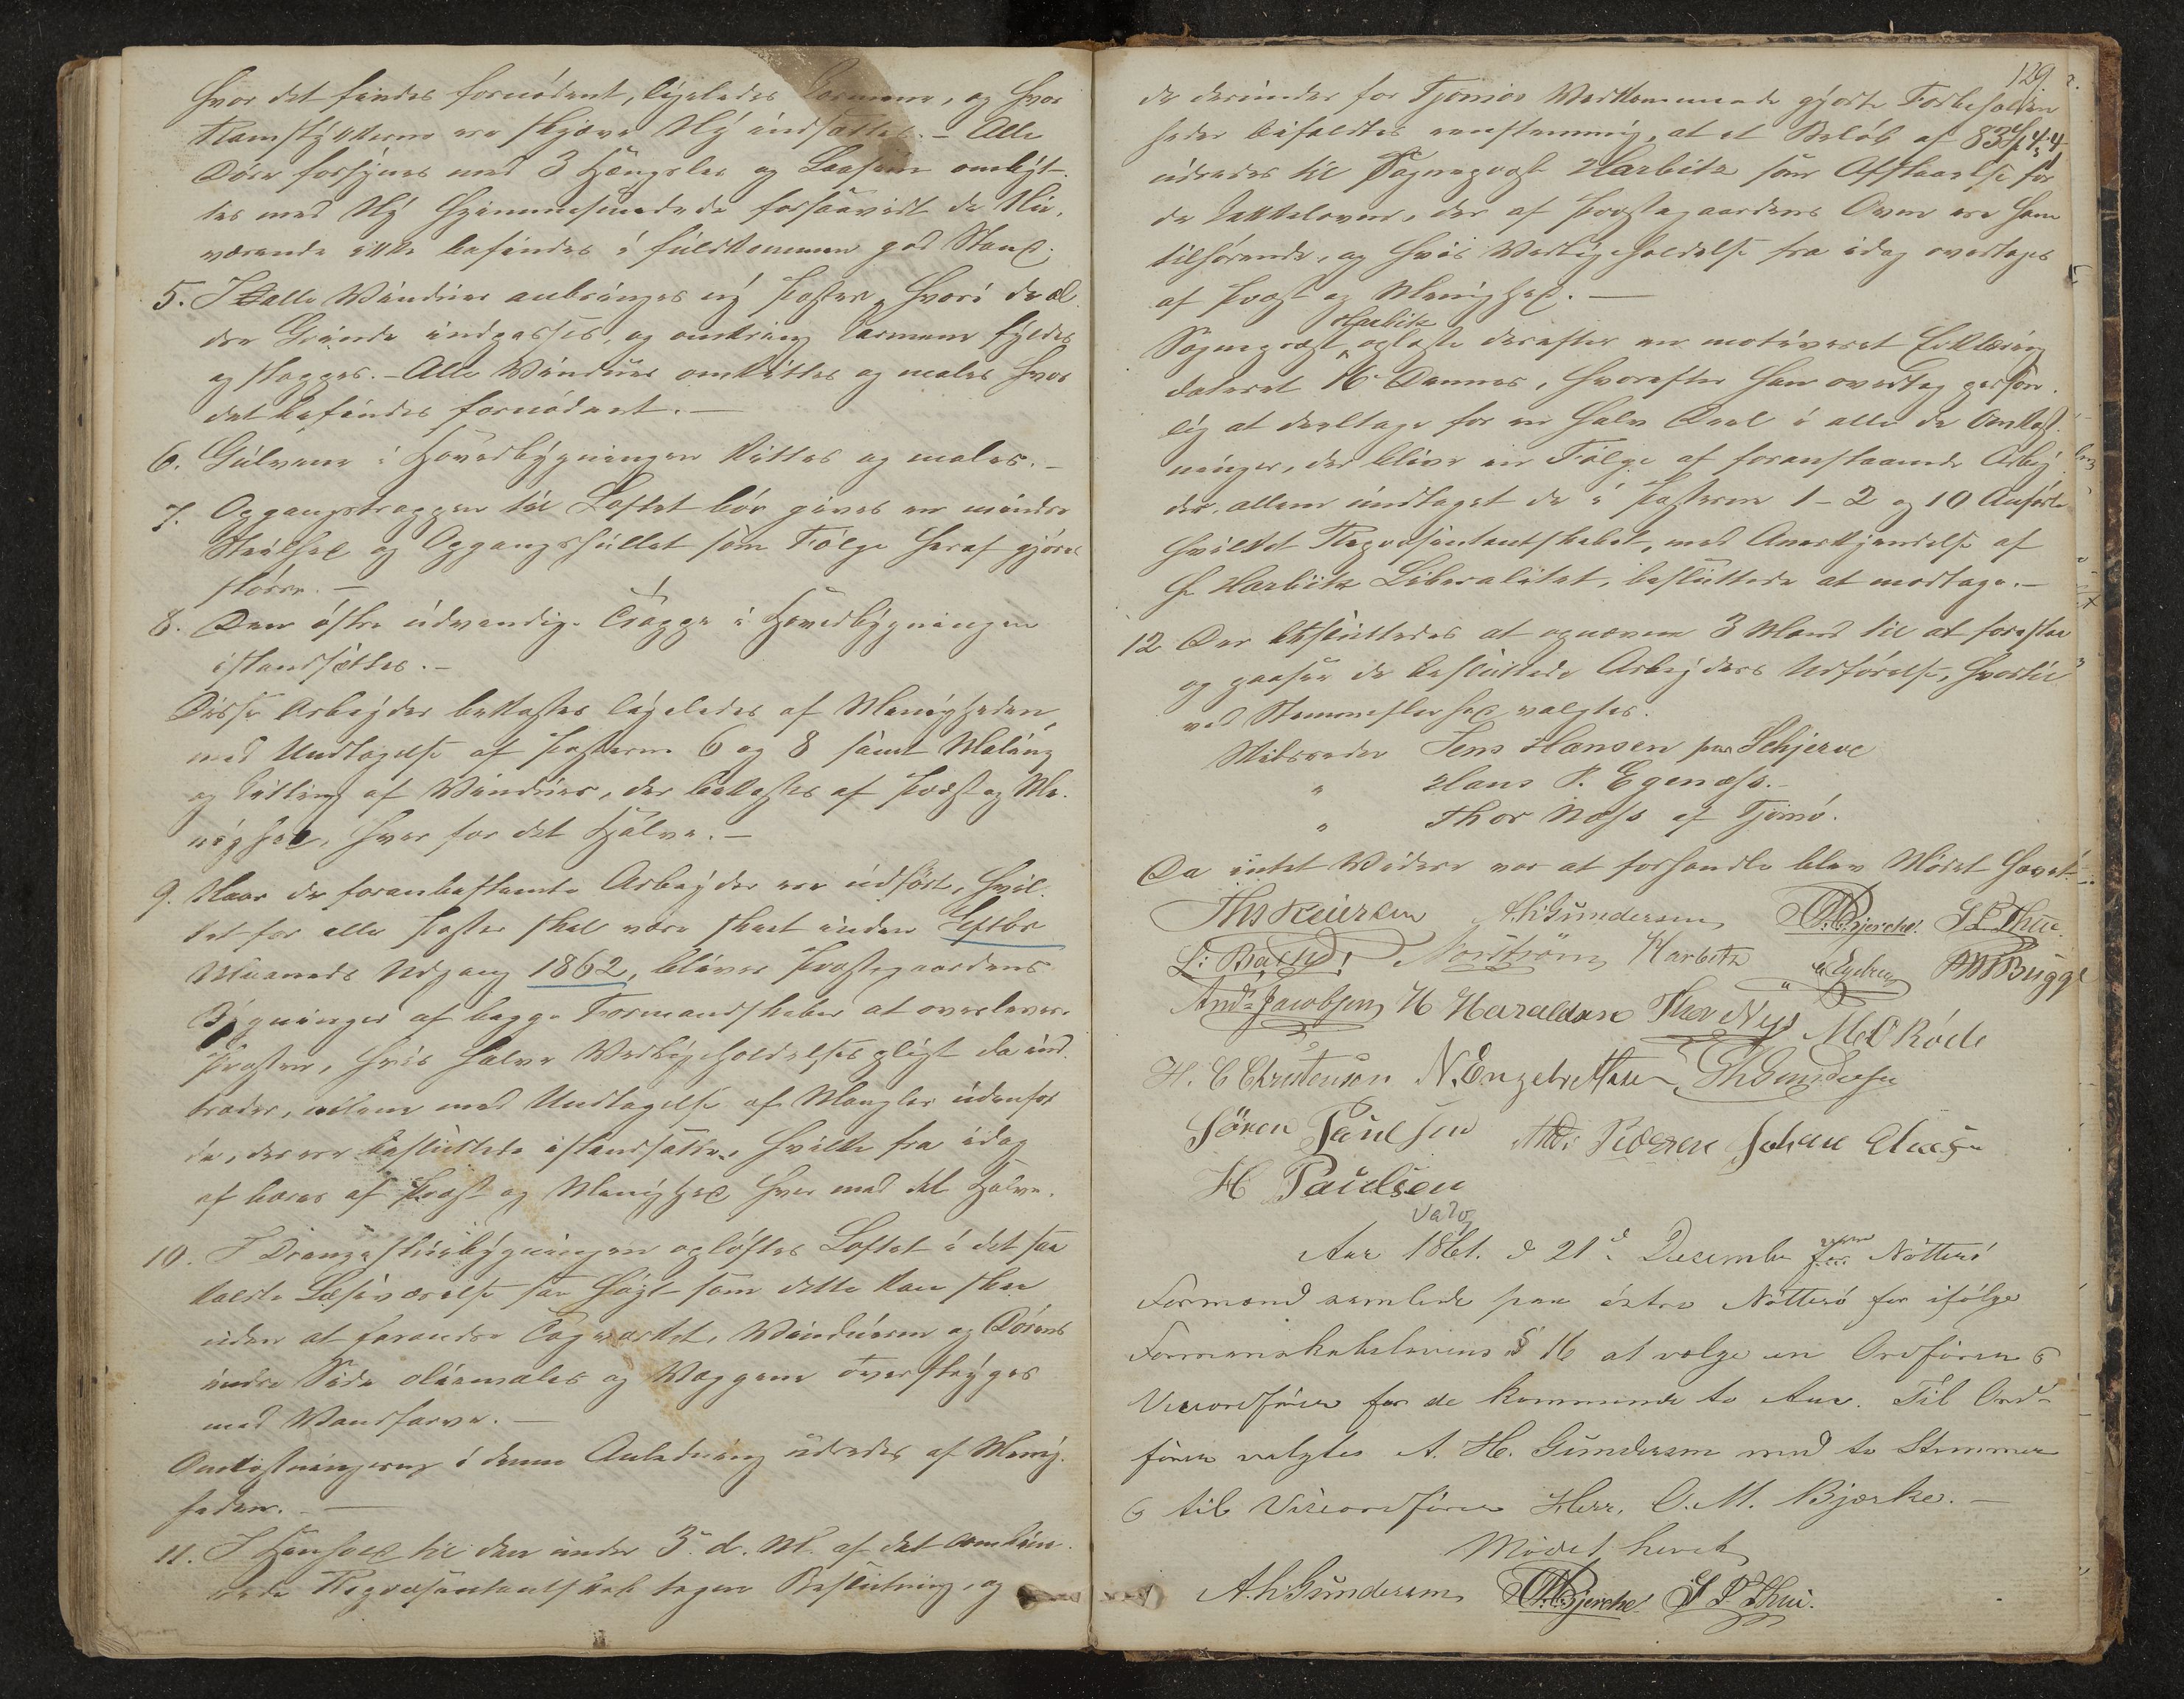 hvor det findes fornødent, ligeledes Karmene, og hvor
Ramstykkerne ere skjæve Ny indsættes. – Alle
Døre forsynes med 3 Hængsler og Laasene ombyt-
tes med Ny hjemmesmedede forsaavidt de Nu-
værende ikke befindes i fuldkommen god Stand.
5. I alle Vinduer anbringes ny Poster, hvori de æl-
dre Grinde indpasses, og omkring Karmene fyldes
og stoppes. – Alle Vinduer omkittes og males hvor
det befindes fornødent. –
6. Gulvene i Hovedbygningen kittes og males. –
7. Opgangstrappen til Loftet bør gives en mindre
Steilhed og Opgangshullet som Følge heraf gjøres
større. –
8. Den østre udvendige Trappe i Hovedbygningen
istandsættes. –
Disse Arbeider bekostes ligeledes af Menigheden,
med Undtagelse af Posterne 6 og 8 samt Maling
og Kitting af Vinduer, der bekostes af Præst og Me-
nighed, hver for det Halve. –
9. Naar de foranbestemte Arbeider ere udført, hvil-
ket for alle Poster skal være skeet inden Octbr
Maaneds Udgang 1862, bliver Præstegaardens
Bygninger af begge Formandskaber at overlevere
Præsten, hvis halve Vedligeholdelsespligt da ind-
træder, allene med Undtagelse af Mangler udenfor
de, der ere besluttede istandsatte, hvilke fra idag
af bæres af Præst og Menighed hver med det Halve.
10. I Drengestuebygningen opløftes Loftet i det saa
kaldte Læseværelse saa høgt som dette kan skee
uden at forandre Tagværket, Vinduerne og Dørens
indre Side oliemales og Væggene overstryges
med Vandfarve. –
Omkostningerne i denne Anledning udredes af Menig-
heden. –
11. I Henhold til den under 3. d. M. af det combine-
rede Repræsentantskab tagne Beslutning, og
129
de derunder for Tjømøs Vedkommende gjorte Forbeholden-
heder bifaldtes eenstemmig, at et Beløb af 83 Spd 4 4
udredes til Sognepræst Harbitz som Afstaaelse for
de Kakkelovne, der af Præstegaardens Ovne ere ham
tilhørende, og hvis Vedligeholdelse fra idag overtages
af Præst og Menighed. –
Harbitz
Sognepræst oplæste derefter en motiveret Erklæring
dateret 16 Dennes, hvorefter han overtog person-
lig at deeltage for en halv Deel i alle de Omkost-
ninger, der blive en Følge af foranstaaende Arbei-
der, allene undtaget de i Posterne 1 – 2 og 10 Anførte
hvilket Repræsentantskabet, med Anerkjendelse af
Hr Harbitz Liberalitet, besluttede at modtage. –
12. Der besluttedes at opnævne 3 Mænd til at forestaa
og paasee de besluttede Arbeiders Udførelse, hvortil
ved Stemmeflerhed valgtes.
Jens Hansen paa Schjerve
" Hans P. Egenæss. –
" Thor Næss af Tjømø.
Da intet Videre var at forhandle blev Mødet hævet. –
A.H. Gundersen O.M. Bjercke S P Thue.
Norstrøm Harbitz Bugge
Ands Jacobsen H Haraldsen Thor Næss M.O Røde
H. C Christensen N. Engebrettsen Th Gundersen
Søren Paulsen Pedersen Johan
H Paulsen
Valg
Aar 1861. d 21d December var Nøtterø
Formænd samlede paa østre Nøtterø for ifølge
Formanskabslovens § 16 at vælge en Ordfører &
Viceordfører for de kommende to Aar. Til Ord-
fører valgtes A. H. Gundersen med to Stemmer
& til Viceordfører Herr, O. M. Bjærke. –
Mødet hævet
A.h Gundersen O.M. Bjercke S P Thue.